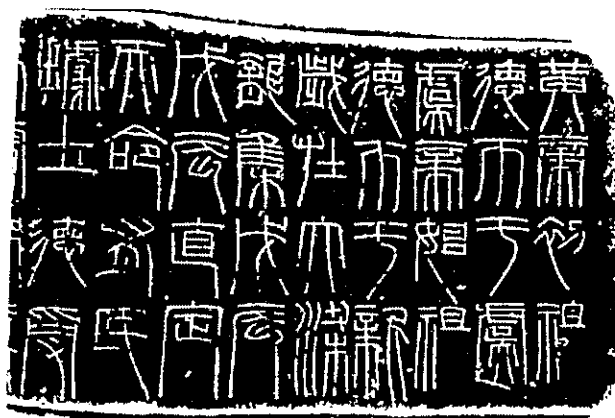 黃帝初祖
德帀于虞
虞帝始祖
德帀于新
歲在大梁
龍集戊辰
戊辰直定
天命有民
據土德受